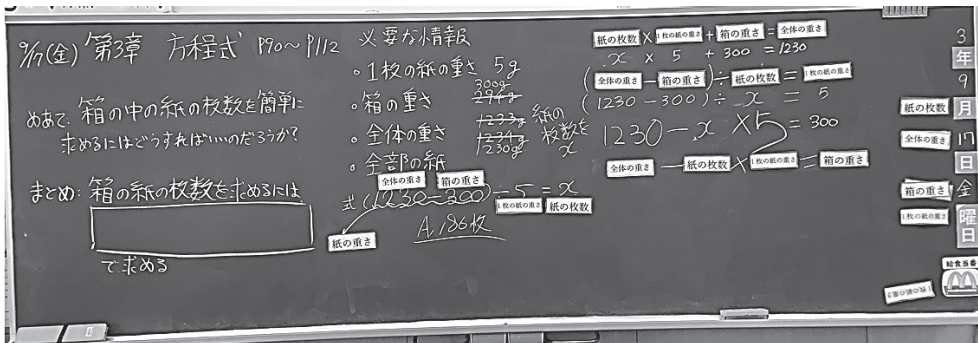 9/17(金) 第3章 方程式 P90〜P112
めあて: 箱の中の紙の枚数を簡単に
求めるにはどうすればいいのだろうか?
まとめ: 箱の紙の枚数を求めるには
で求める
必要な情報
・1枚の紙の重さ 5g
300g
・箱の重さ 294g
1233g
・全体の重さ 1234g
1230g
・全部の紙
紙の
枚数を
x
全体の重さ 箱の重さ
式(1230-300)÷5=x
1枚の紙の重さ 紙の枚数
紙の重さ
A, 186枚
紙の枚数 × 1枚の紙の重さ + 箱の重さ = 全体の重さ
x × 5 + 300 = 1230
(全体の重さ - 箱の重さ) ÷ 紙の枚数 = 1枚の紙の重さ
(1230-300) ÷ x = 5
1230-x ×5=300
全体の重さ - 紙の枚数 × 1枚の紙の重さ = 箱の重さ
3
年
9
月
17
日
金
曜
日
紙の枚数
全体の重さ
箱の重さ
1枚の紙の重さ
給食当番
1枚の紙の重さ